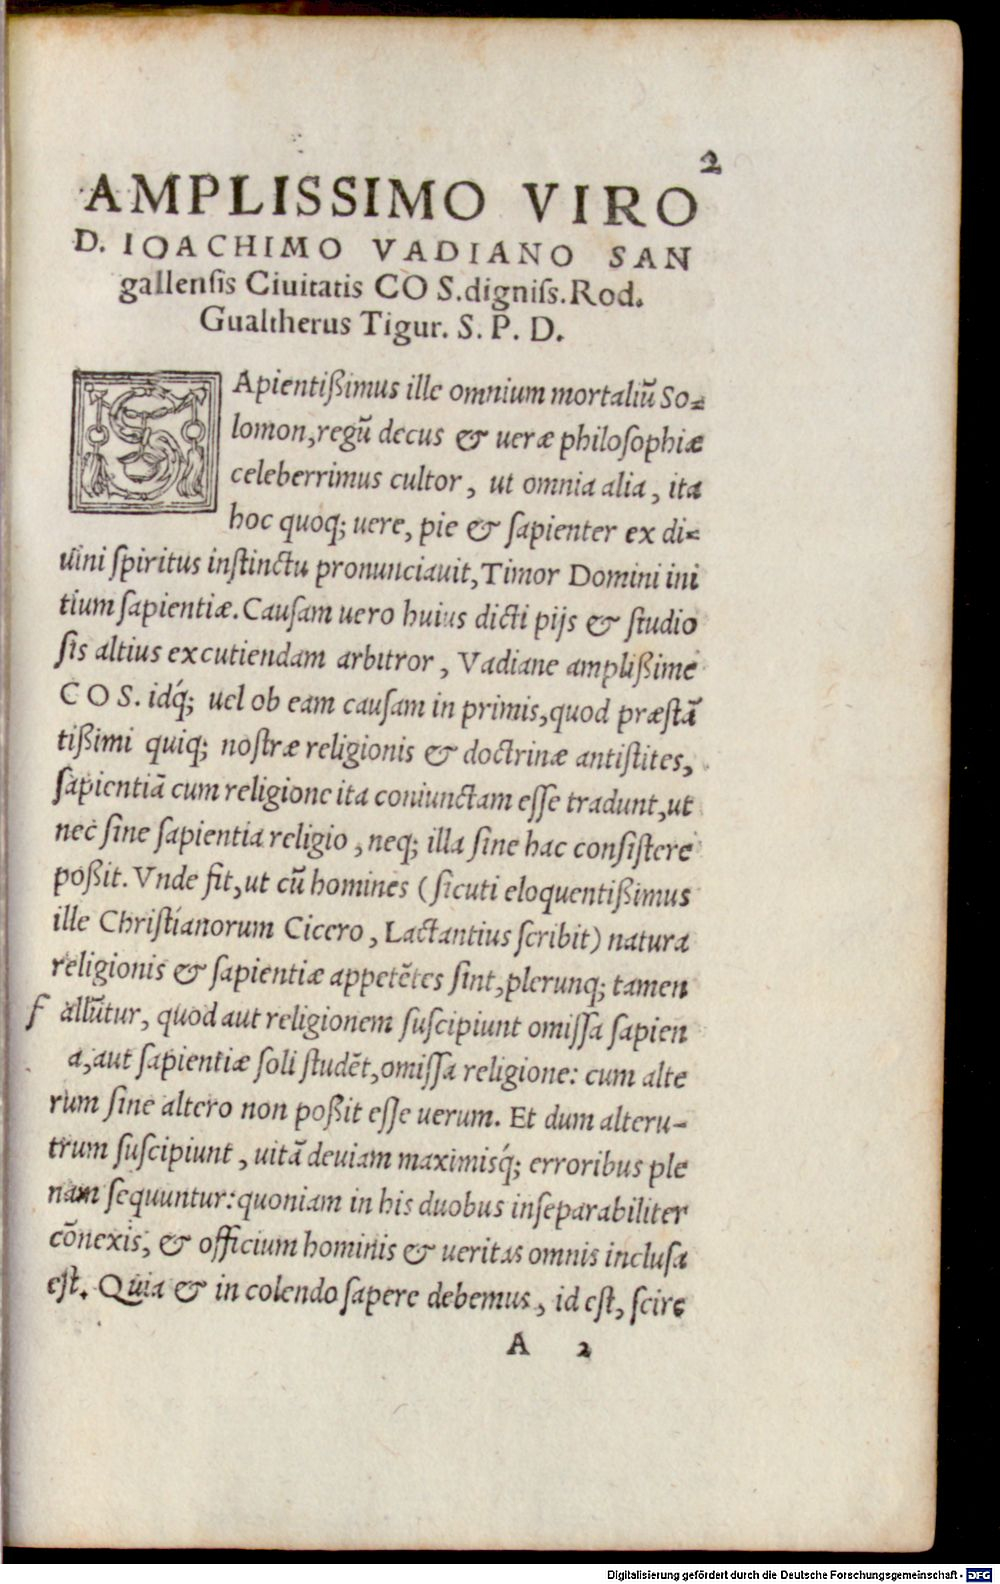 2
AMPLISSIMO VIRO
D. IOACHIMO VADIANO SAN
gallensis Ciuitatis COS. digniss. Rod.
Gualtherus Tigur. S. P. D.
SApientißimus ille omnium mortaliũ So=
lomon, regũ decus & ueræ philosophiæ
celeberrimus cultor, ut omnia alia, ita
hoc quoq; uere, pie & sapienter ex di=
uini spiritus instinctu pronunciauit, Timor Domini ini
tium sapientiæ. Causam uero huius dicti pijs & studio
sis altius excutiendam arbitror, Vadiane amplißime
COS. idq́; uel ob eam causam in primis, quod præstã
tißimi quiq; nostræ religionis & doctrinæ antistites,
sapientiã cum religione ita coniunctam esse tradunt, ut
nec sine sapientia religio, neq; illa sine hac consistere
poßit. Vnde fit, ut cũ homines (sicuti eloquentißimus
ille Christianorum Cicero, Lactantius scribit) natura
religionis & sapientiæ appetẽtes sint, plerunq; tamen
f allũtur, quod aut religionem suscipiunt omissa sapien
a, aut sapientiæ soli studẽt, omissa religione: cum alte
rum sine altero non poßit esse uerum. Et dum alteru-
trum suscipiunt, uitã deuiam maximisq́; erroribus ple
nam sequuntur: quoniam in his duobus inseparabiliter
cõnexis, & officium hominis & ueritas omnis inclusa
est. Quia & in colendo sapere debemus, id est, scire
A 2
Digitalisierung gefördert durch die Deutsche Forschungsgemeinschaft - DFG